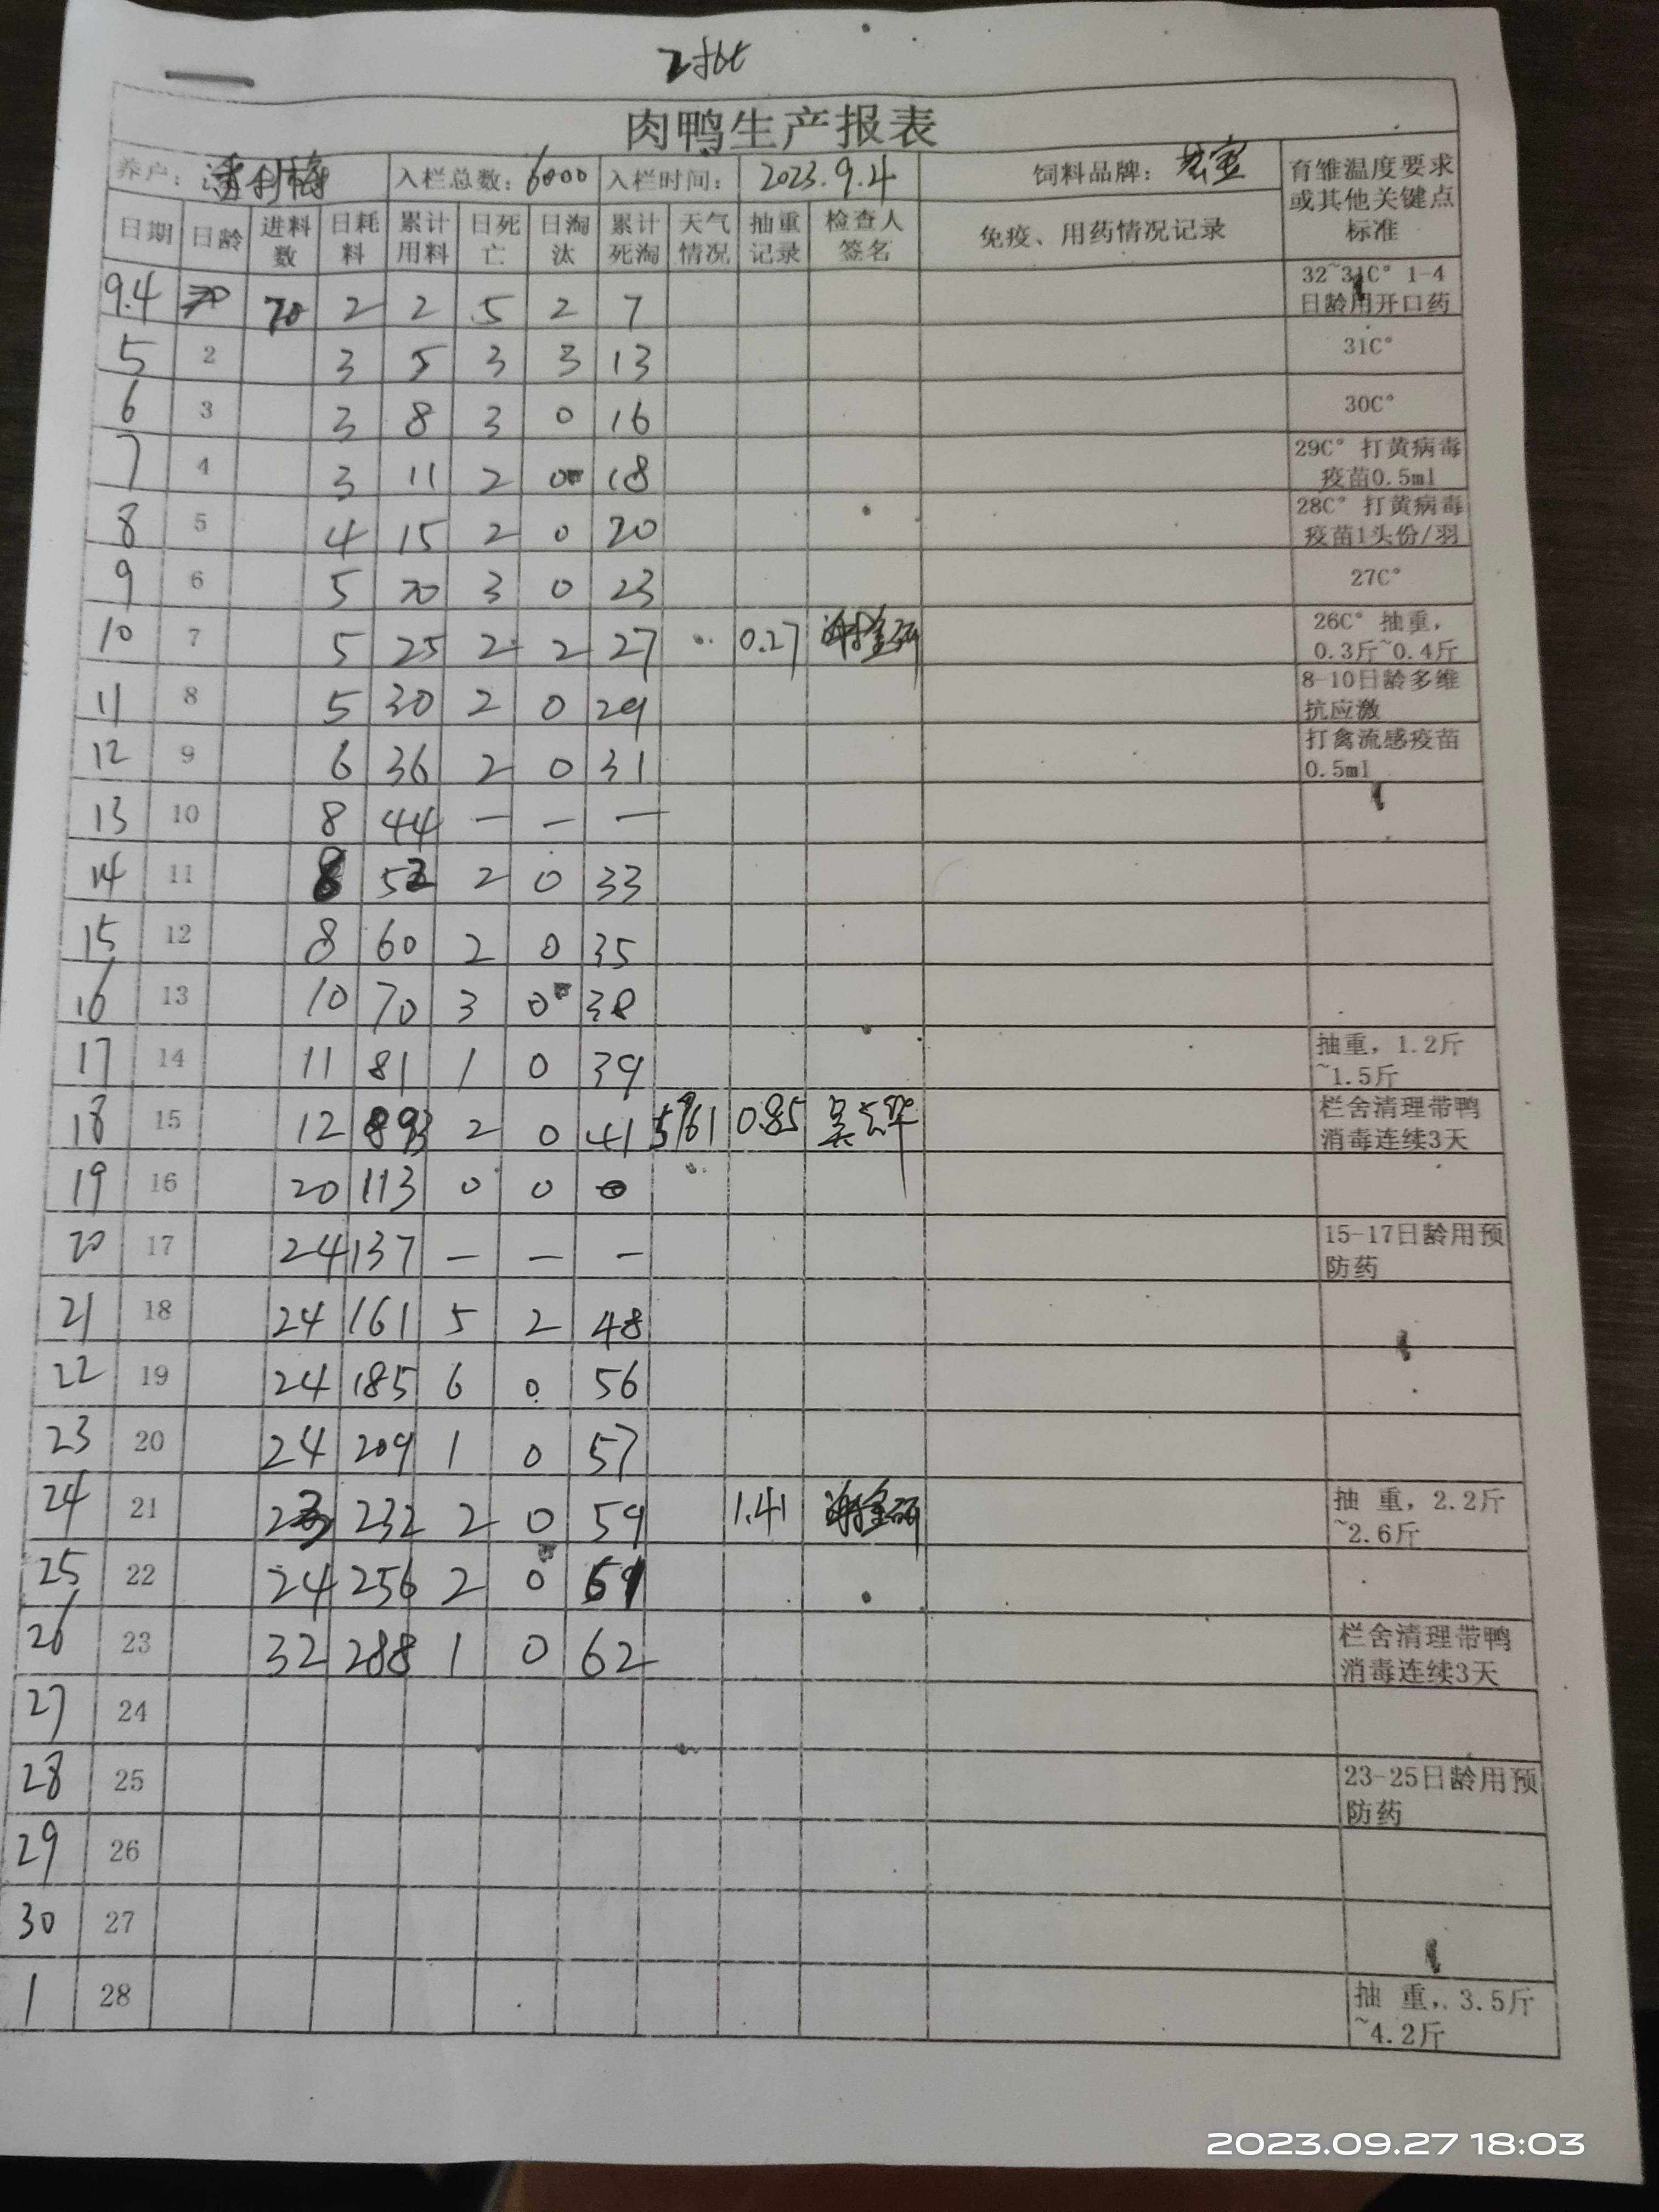 2批
肉鸭生产报表
养户: 潘利梅 入栏总数: 6000 入栏时间: 2023.9.4 饲料品牌: 宏宝 育雏温度要求或其他关键点标准
日期 日龄 进料数 日耗料 累计用料 日死亡 日淘汰 累计死淘 天气情况 抽重记录 检查人签名 免疫、用药情况记录
9.4 70 2 2 5 2 7 32~31C° 1-4日龄用开口药
5 2 3 5 3 3 13 31C°
6 3 3 8 3 0 16 30C°
7 4 3 11 2 0 18 29C° 打黄病毒疫苗0.5ml
8 5 4 15 2 0 20 28C° 打黄病毒疫苗1头份/羽
9 6 5 20 3 0 23 27C°
10 7 5 25 2 2 27 0.27 26C° 抽重，0.3斤~0.4斤
11 8 5 30 2 0 29 8-10日龄多维抗应激
12 9 6 36 2 0 31 打禽流感疫苗0.5ml
13 10 8 44 — — —
14 11 8 52 2 0 33
15 12 8 60 2 0 35
16 13 10 70 3 0 38
17 14 11 81 1 0 39 抽重，1.2斤~1.5斤
18 15 12 93 2 0 41 5961 0.85 栏舍清理带鸭消毒连续3天
19 16 20 113 0 0 0
20 17 24 137 — — — 15-17日龄用预防药
21 18 24 161 5 2 48
22 19 24 185 6 0 56
23 20 24 209 1 0 57
24 21 23 232 2 0 59 1.41 抽 重，2.2斤~2.6斤
25 22 24 256 2 0 61
26 23 32 288 1 0 62 栏舍清理带鸭消毒连续3天
27 24
28 25 23-25日龄用预防药
29 26
30 27
1 28 抽 重，3.5斤~4.2斤
2023.09.27 18:03